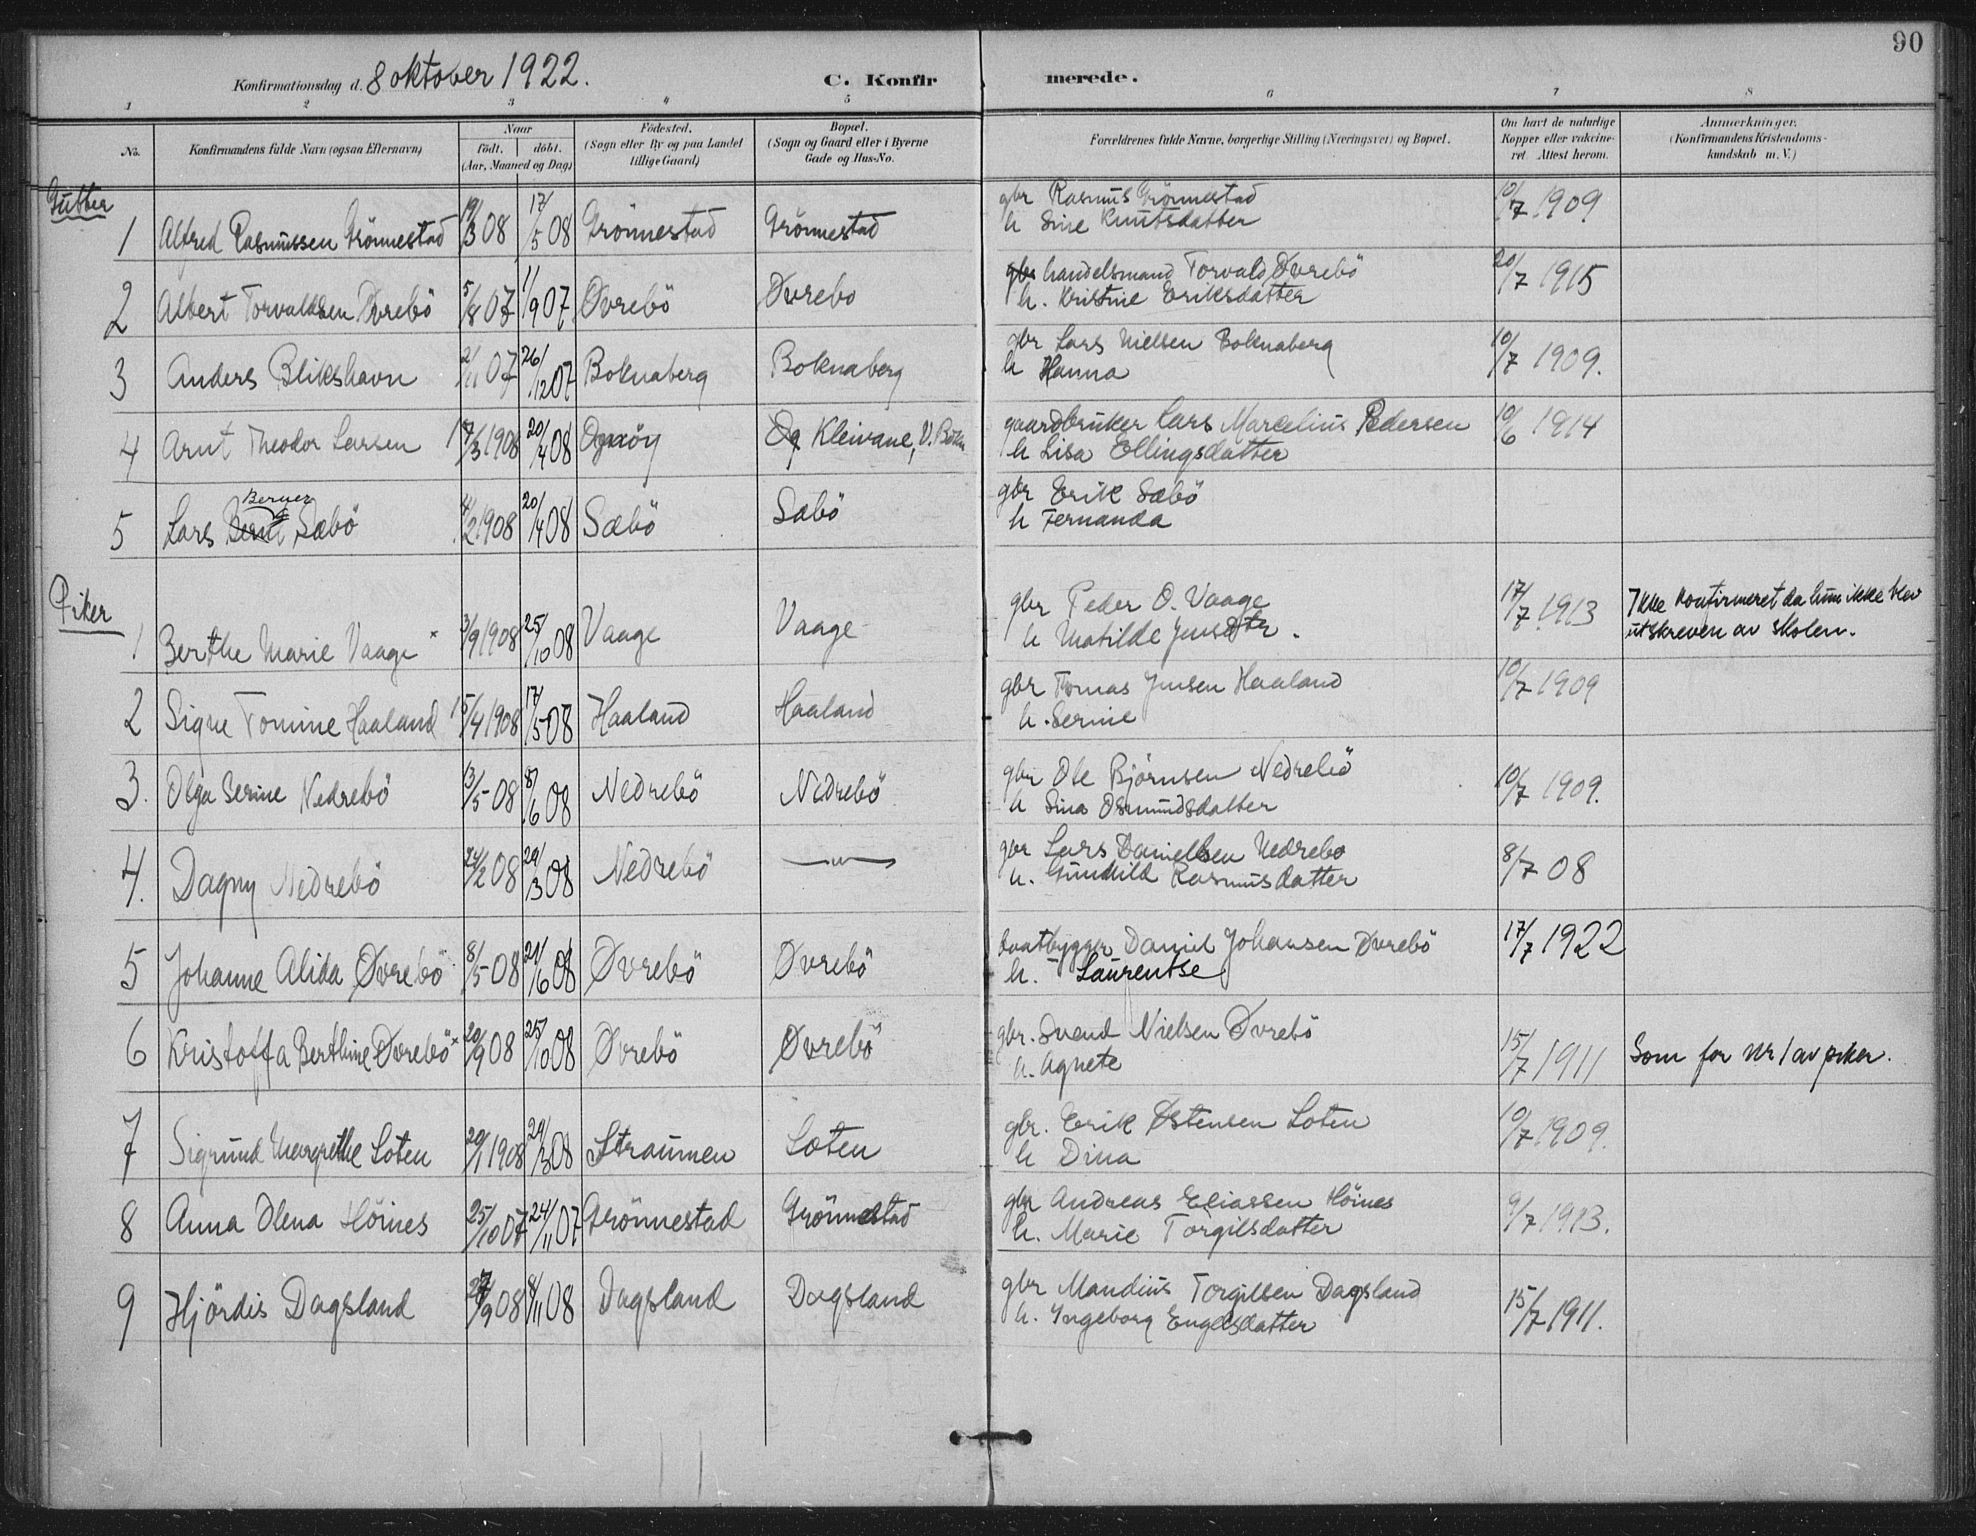 90
Konfirmationsdag d. 8 oktober 1922. C. Konfirmerede.
1 2 3 4 5 6 7 8
No. Konfirmandens fulde Navn (ogsaa Efternavn) Naar født. døbt. (Aar, Maaned og Dag) Fødested. (Sogn eller By og paa Landet tillige Gaard) Bopæl. (Sogn og Gaard eller i Byerne Gade og Hus-No. Forældrenes fulde Navne, borgerlige Stilling (Næringsvei) og Bopæl. Om havt de naturlige Kopper eller vakcineret. Attest herom. Anmærkninger. (Konfirmandens Kristendomskundskab m. V.)
Gutter
1 Alfred Rasmussen Grönnestad 19/3 08 17/5 08 Grönnestad Grönnestad gbr Rasmus Grönnestad 10/7 1909
h Sine Knutsdatter
2 Albert Torvaldsen Øvrebö 5/8 07 1/9 07 Øvrebö Øvrebo gbr handelsmand Torvald Øvrebö 20/7 1915
h. Kristine Eriksdatter
3 Anders Blikshavn 2/11 07 26/12 07 Boknaberg Boknaberg gbr Lars Nielsen Boknaberg 10/7 1909.
h Hanna
4 Arnt Theodor Larsen 17/3 1908 20/4 08 Ognöy Og Kleivane, V. Bokn gaardbruker Lars Marcelius Pedersen 10/6 1914
h Lisa Ellingsdatter
Berner
5 Lars Bernt Sæbö 4/2 1908 20/4 08 Sæbö Sæbö gbr Erik Sæbö
h Fernanda
Piker
1 Berthe Marie Vaage × 3/9 1908 25/10 08 Vaage Vaage gbr Peder O. Vaage 17/7 1913 Ikke konfirmeret da hun ikke blev
h Matilde Jensdtr. utskreven av skolen.
2 Signe Tomine Haaland 15/4 1908 17/5 08 Haaland Haaland gbr Tomas Jensen Haaland 10/7 1909
h. Serine
3. Olga Serine Nedrebö 13/5 08 8/6 08 Nedrebö Nedrebö gbr Ole Björnsen Nedrebö 10/7 1909.
h Sina Osmundsdatter
4. Dagny Nedrebö 24/2 08 29/3 08 Nedrebö —"— gbr Lars Danielsen Nedrebo 8/7 08
h. Gunhild Rasmusdatter
5 Johanne Alida Øvrebö 8/5 08 21/6 08 Øvrebö Øvrebö baatbygger Daniel Johansen Øvrebö 17/7 1922
h. Laurentse
6 Kristoffa Berthine Øvrebö × 20/9 08 25/10 08 Øvrebö Øvrebö gbr. Svend Nielsen Øvrebö 15/7 1911 Som for Nr 1 av piker.
h. Agnete
7 Sigrund Margrethe Loten 20/1 1908 29/3 08 Straumen Loten gbr. Erik Østensen Loten 10/7 1909.
h Dina
8 Anna Olena Höines 25/10 07 24/11 07 Grönnestad Grönnestad gbr Andreas Eliassen Höines 9/7 1913.
h. Marie Torgilsdatter
9 Hjördis Dagsland 27/9 08 8/11 08 Dagsland Dagsland gbr Mandius Torgilsen Dagsland 15/7 1911.
h. Ingeborg Engelsdatter